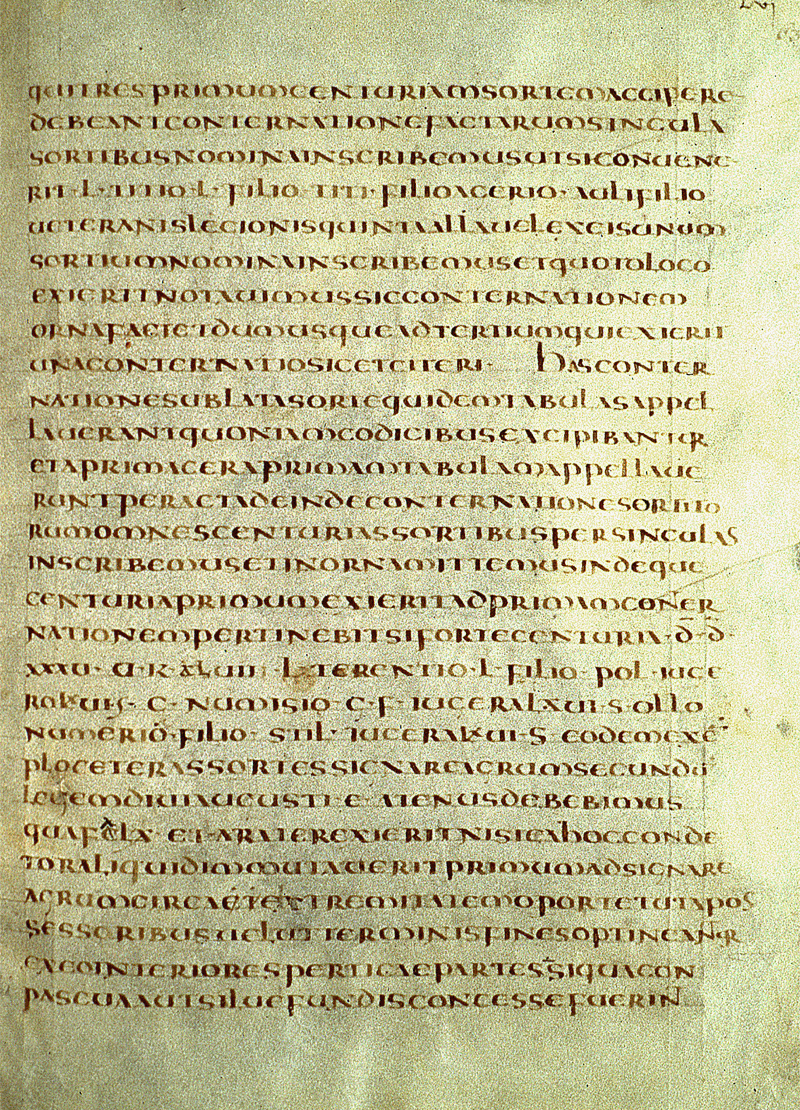 qui tres primum centuriam sortem accipere
debeant conternatione factarum singula
sortibus nomina inscribemus ut si convene
rit L· titio L· filio titi· filio acerio· auli filio
veteranis legionis quinta allavel ex cis unum
sortium nomina inscribemus et quoto loco
exierit notavimus sic conternationem
orna faciet dumusque ad tertium qui exierit
una conternatio sic et citeri· has conter
nationes ublata sorte quidem tabulas appel
laverant quoniam codicibus excipibantur
et a prima cera primam tabulam appellave
runt peracta deinde conternatione sortito
rum omnes centurias sortibus per singulas
inscribemus et in orna mittemus inde que
centuria primum exierit ad primam coner
nationem pertinebit si forte centuria· d· d·
xxxv· v· k· L· terentio· L· filio· pol· iuce
C· numisio· C· f· iucera lxvi· s· ollo
numerio· filio· stil· iucera s· eodem exe
plo ceteras sortes signare agrum secundu
legem divi augusti e atenus debebimus
qua lx· et· arater exierit nisi ea hoc conde
tor aliquid immutaverit primum adsignare
agrum circa extremitatem oportet ut a pos
sessoribus velut terminis fines optineantur
ex eo interiores perticae partes siqua con
pascua aut siluefundis concesse fuerin